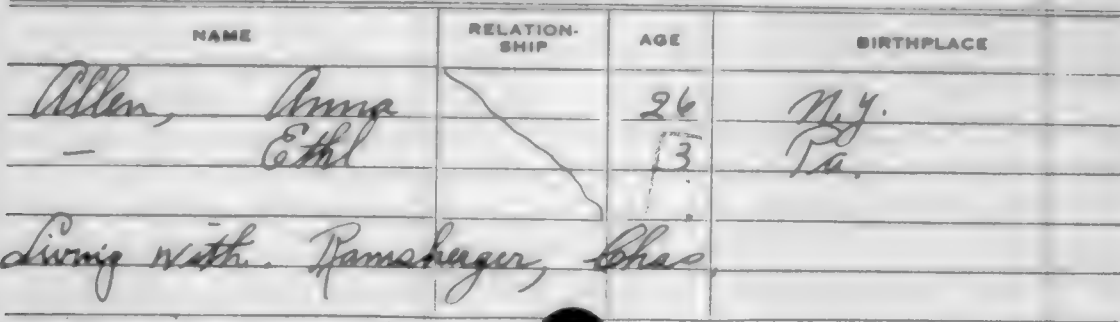 NAME RELATION-SHIP AGE BIRTHPLACE
Allen, Anna 26 N.Y.
— Ethl 3 Pa.
Living with. Ramsberger, Chas